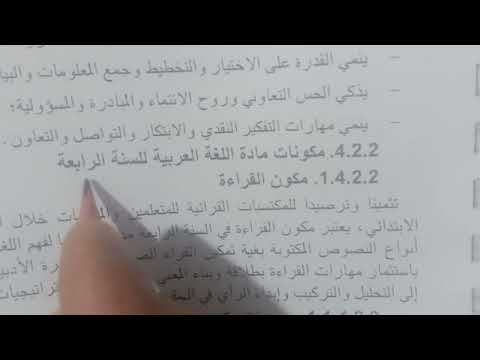 - ينمي القدرة على الاختيار والتخطيط وجمع المعلومات والبيا
- يذكي الحس التعاوني وروح الانتماء والمبادرة والمسؤولية؛
- ينمي مهارات التفكير النقدي والابتكار والتواصل والتعاون.
4.2.2. مكونات مادة اللغة العربية للسنة الرابعة
1.4.2.2. مكون القراءة
تثمينا وترصيدا للمكتسبات القرائية للمتعلمين خلال ا
الابتدائي، يعتبر مكون القراءة في السنة الرابعة لفهم اللغ
أنواع النصوص المكتوبة بغية تمكين الأدبي
باستثمار مهارات القراءة بطلاقة وبناء المعنى
إلى التحليل والتركيب وإبداء الرأي في